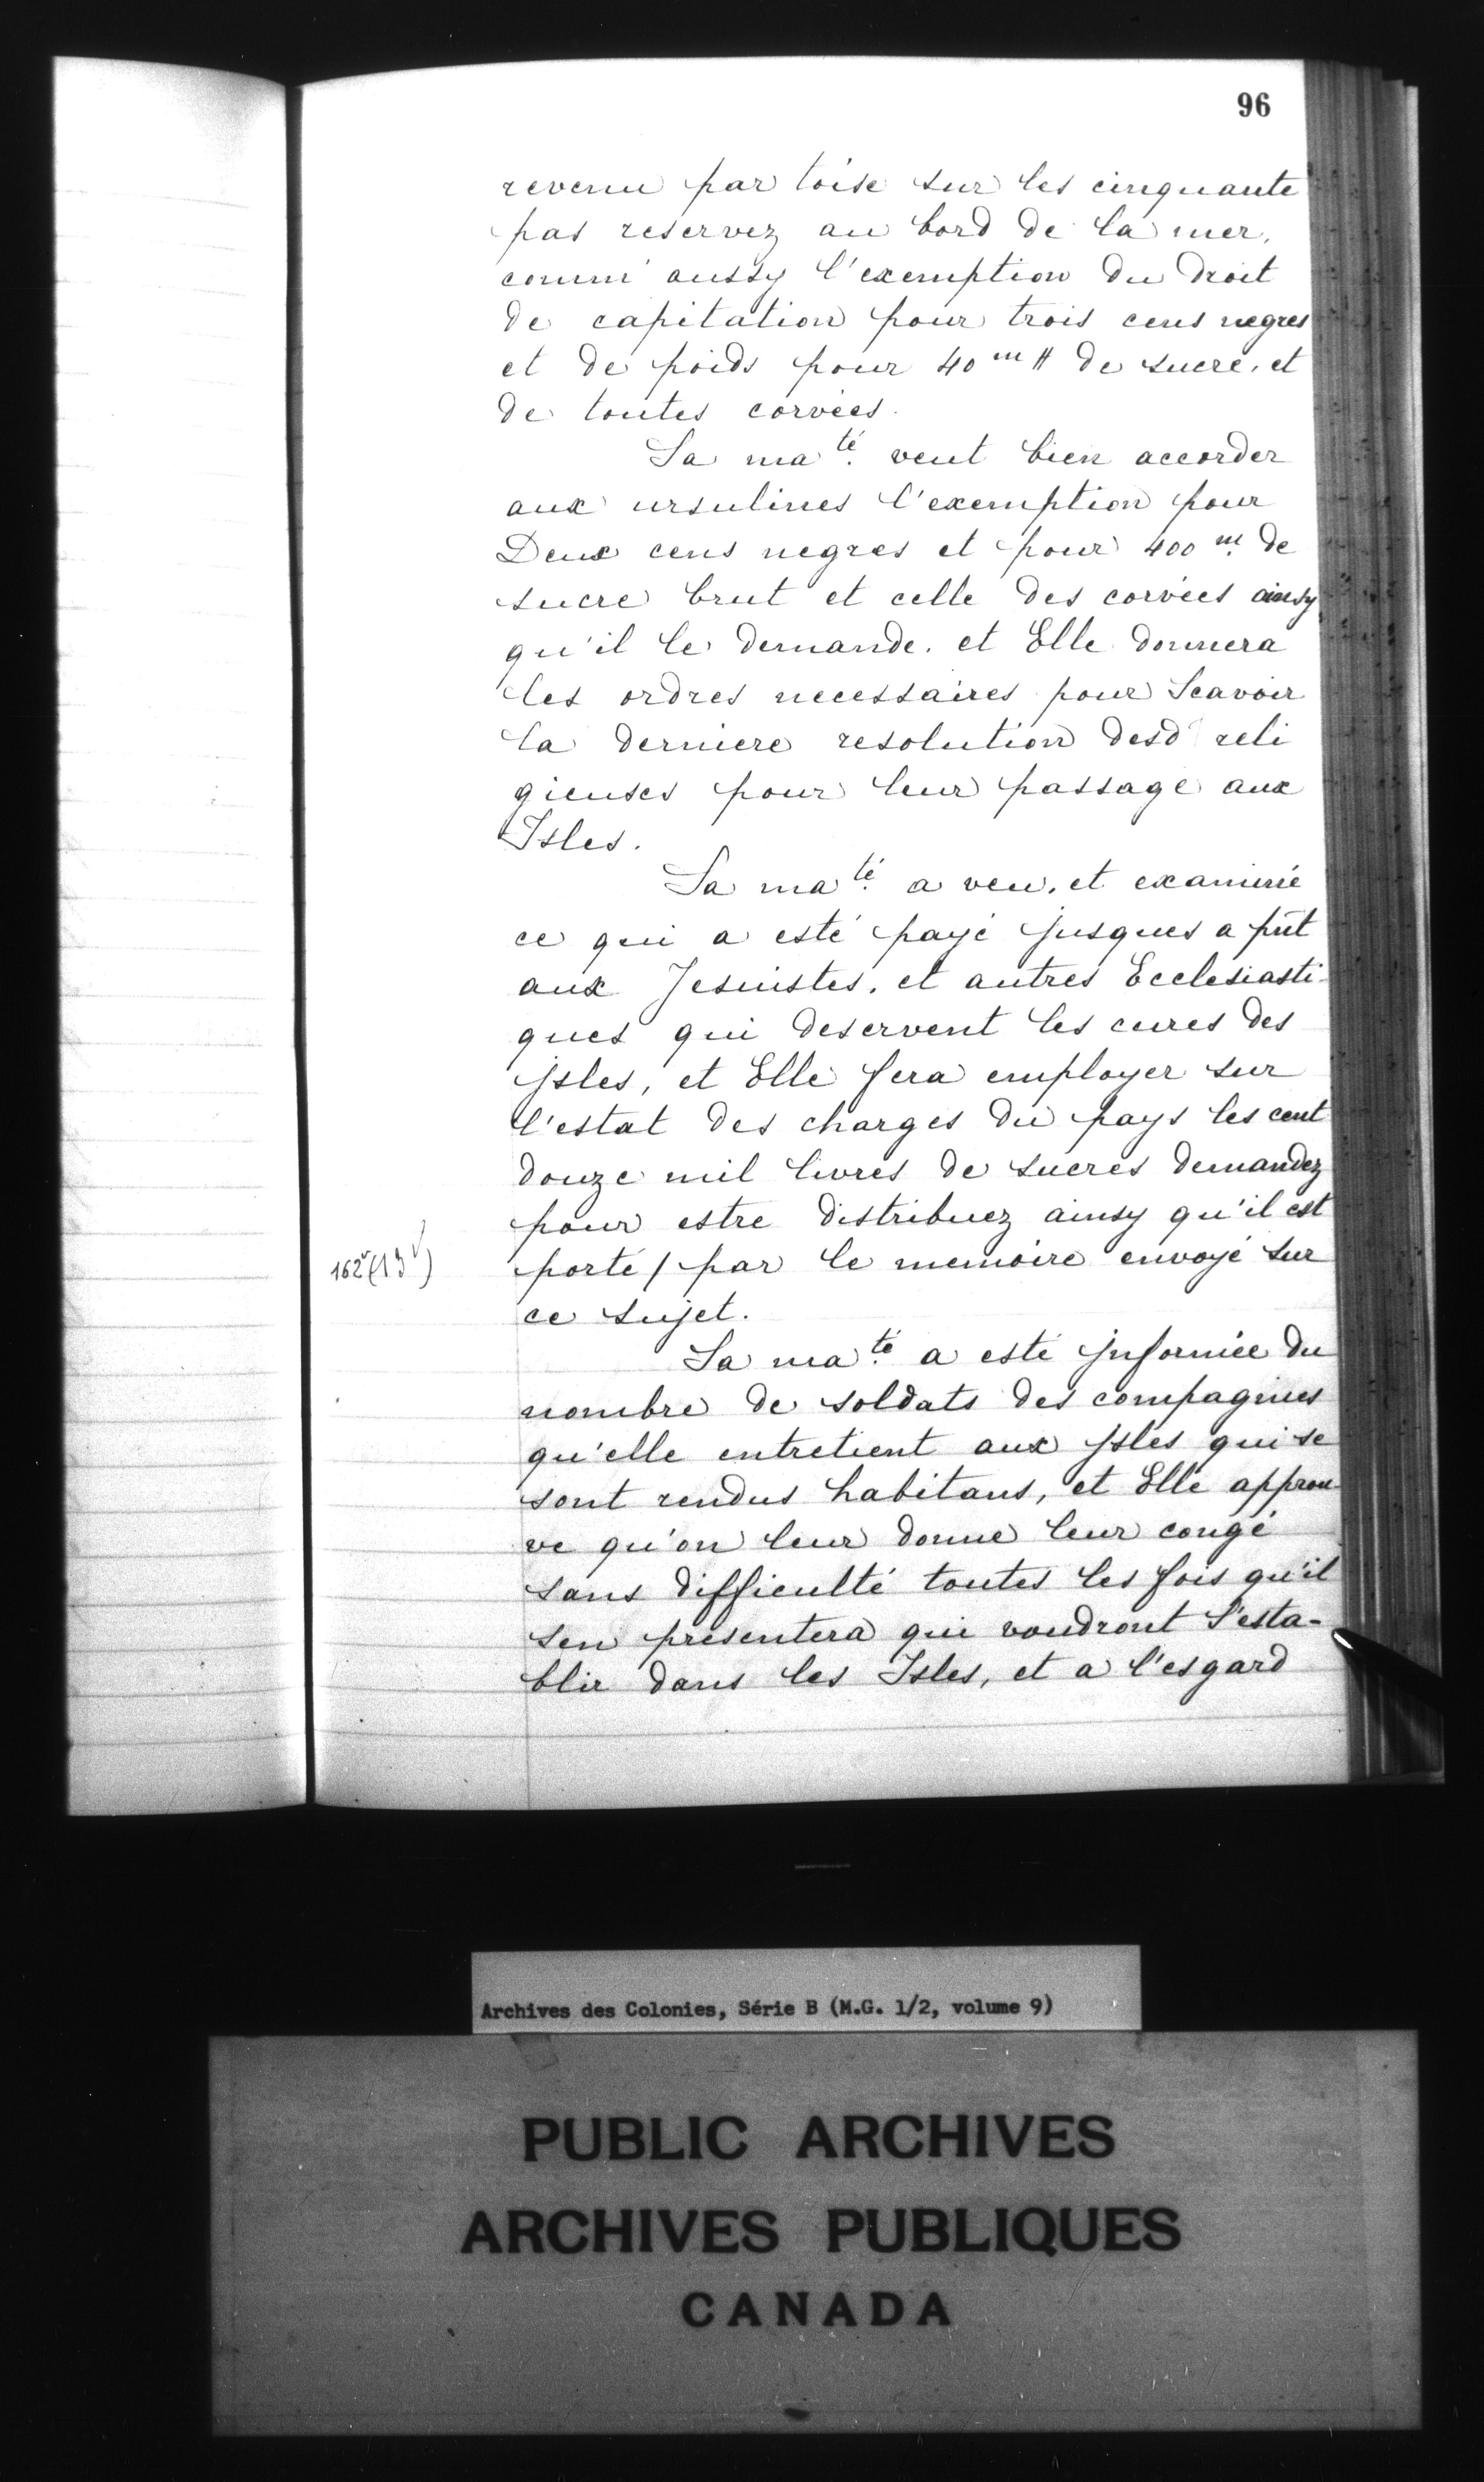 96
revenu par toise sur les cinquante
pas reservez au bord de la mer,
comm' aussy l'exemption du droit
de capitation pour trois cens negres
et de poids pour 40 m ₶ de sucre, et
de toutes corvées.
Sa ma té. veut bien accorder
aux ursulines l'exemption pour
Deux cens negres et pour 400 m. de
sucre brut et celle des corvées ainsy
qu'il le demande. et Elle donnera
les ordres necessaires pour Scavoir
la derniere resolution desd reli
gieuses pour leur passage aux
Isles.
Sa ma té. a veu, et examiné
ce qui a esté payé jusques a pñt
aux Jesuistes, et autres Ecclesiasti-
ques qui deservent les cures des
jsles, et Elle fera employer sur
l'estat des charges du pays les cent
douze mil livres de sucres demandez
pour estre distribuez ainsy qu'il est
162v (13v)
porté / par le memoire envoyé sur
ce sujet.
Sa ma té. a esté jnformée du
nombre de soldats des compagnies
qu'elle entretient aux jsles qui se
sont rendus habitans, et Elle approu-
ve qu'on leur donne leur congé
sans difficulté toutes les fois qu'il
sen presentera qui voudront s'esta-
blir dans les Isles, et a l'esgard
Archives des Colonies, Série B (M.G. 1/2, volume 9)
PUBLIC ARCHIVES
ARCHIVES PUBLIQUES
CANADA